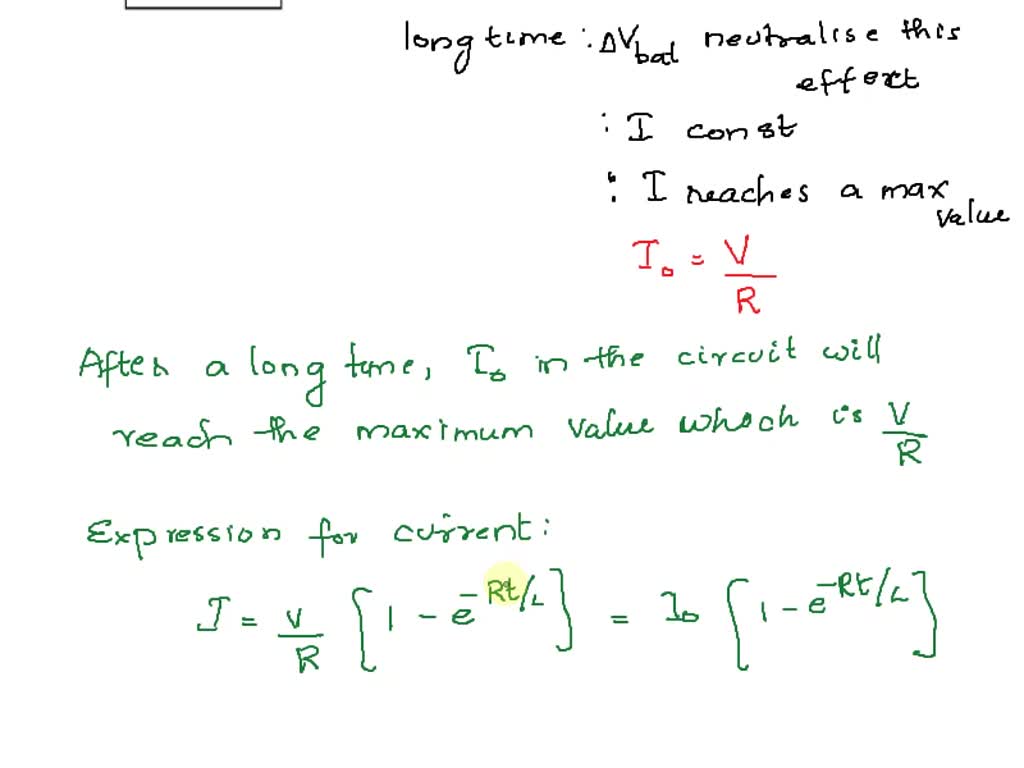 long time : ΔVbat neutralise this
effect
: I const
: I reaches a max
value
I₀ = V/R
After a long time, I₀ in the circuit will
reach the maximum value which is V/R
Expression for current:
I = V/R [1 - e^-Rt/L] = I₀ [1 - e^-Rt/L]